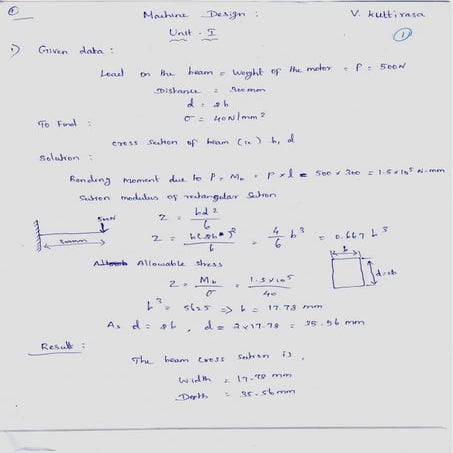 Machine Design :
V. Kuttirasa
Unit - I
①
1) Given data :
Load on the beam = Weight of the motor = P = 500N
Distance = 300mm
d = 2b
σ = 40N/mm²
To Find :
cross section of beam (ie) b, d
Solution :
Bending moment due to P = Mb = P x l = 500 x 300 = 1.5x10⁵ N-mm
Section modulus of rectangular Section
Z = bd²/6
500N
300mm
Z = b(2b)²/6 = 4/6 b³ = 0.667 b³
b
d=2b
Allowable stress
Z = Mb/σ = 1.5x10⁵/40
b³ = 5625 => b = 17.78 mm
As d = 2b, d = 2x17.78 = 35.56 mm
Result :
The beam cross section is,
Width = 17.78 mm
Depth = 35.56mm